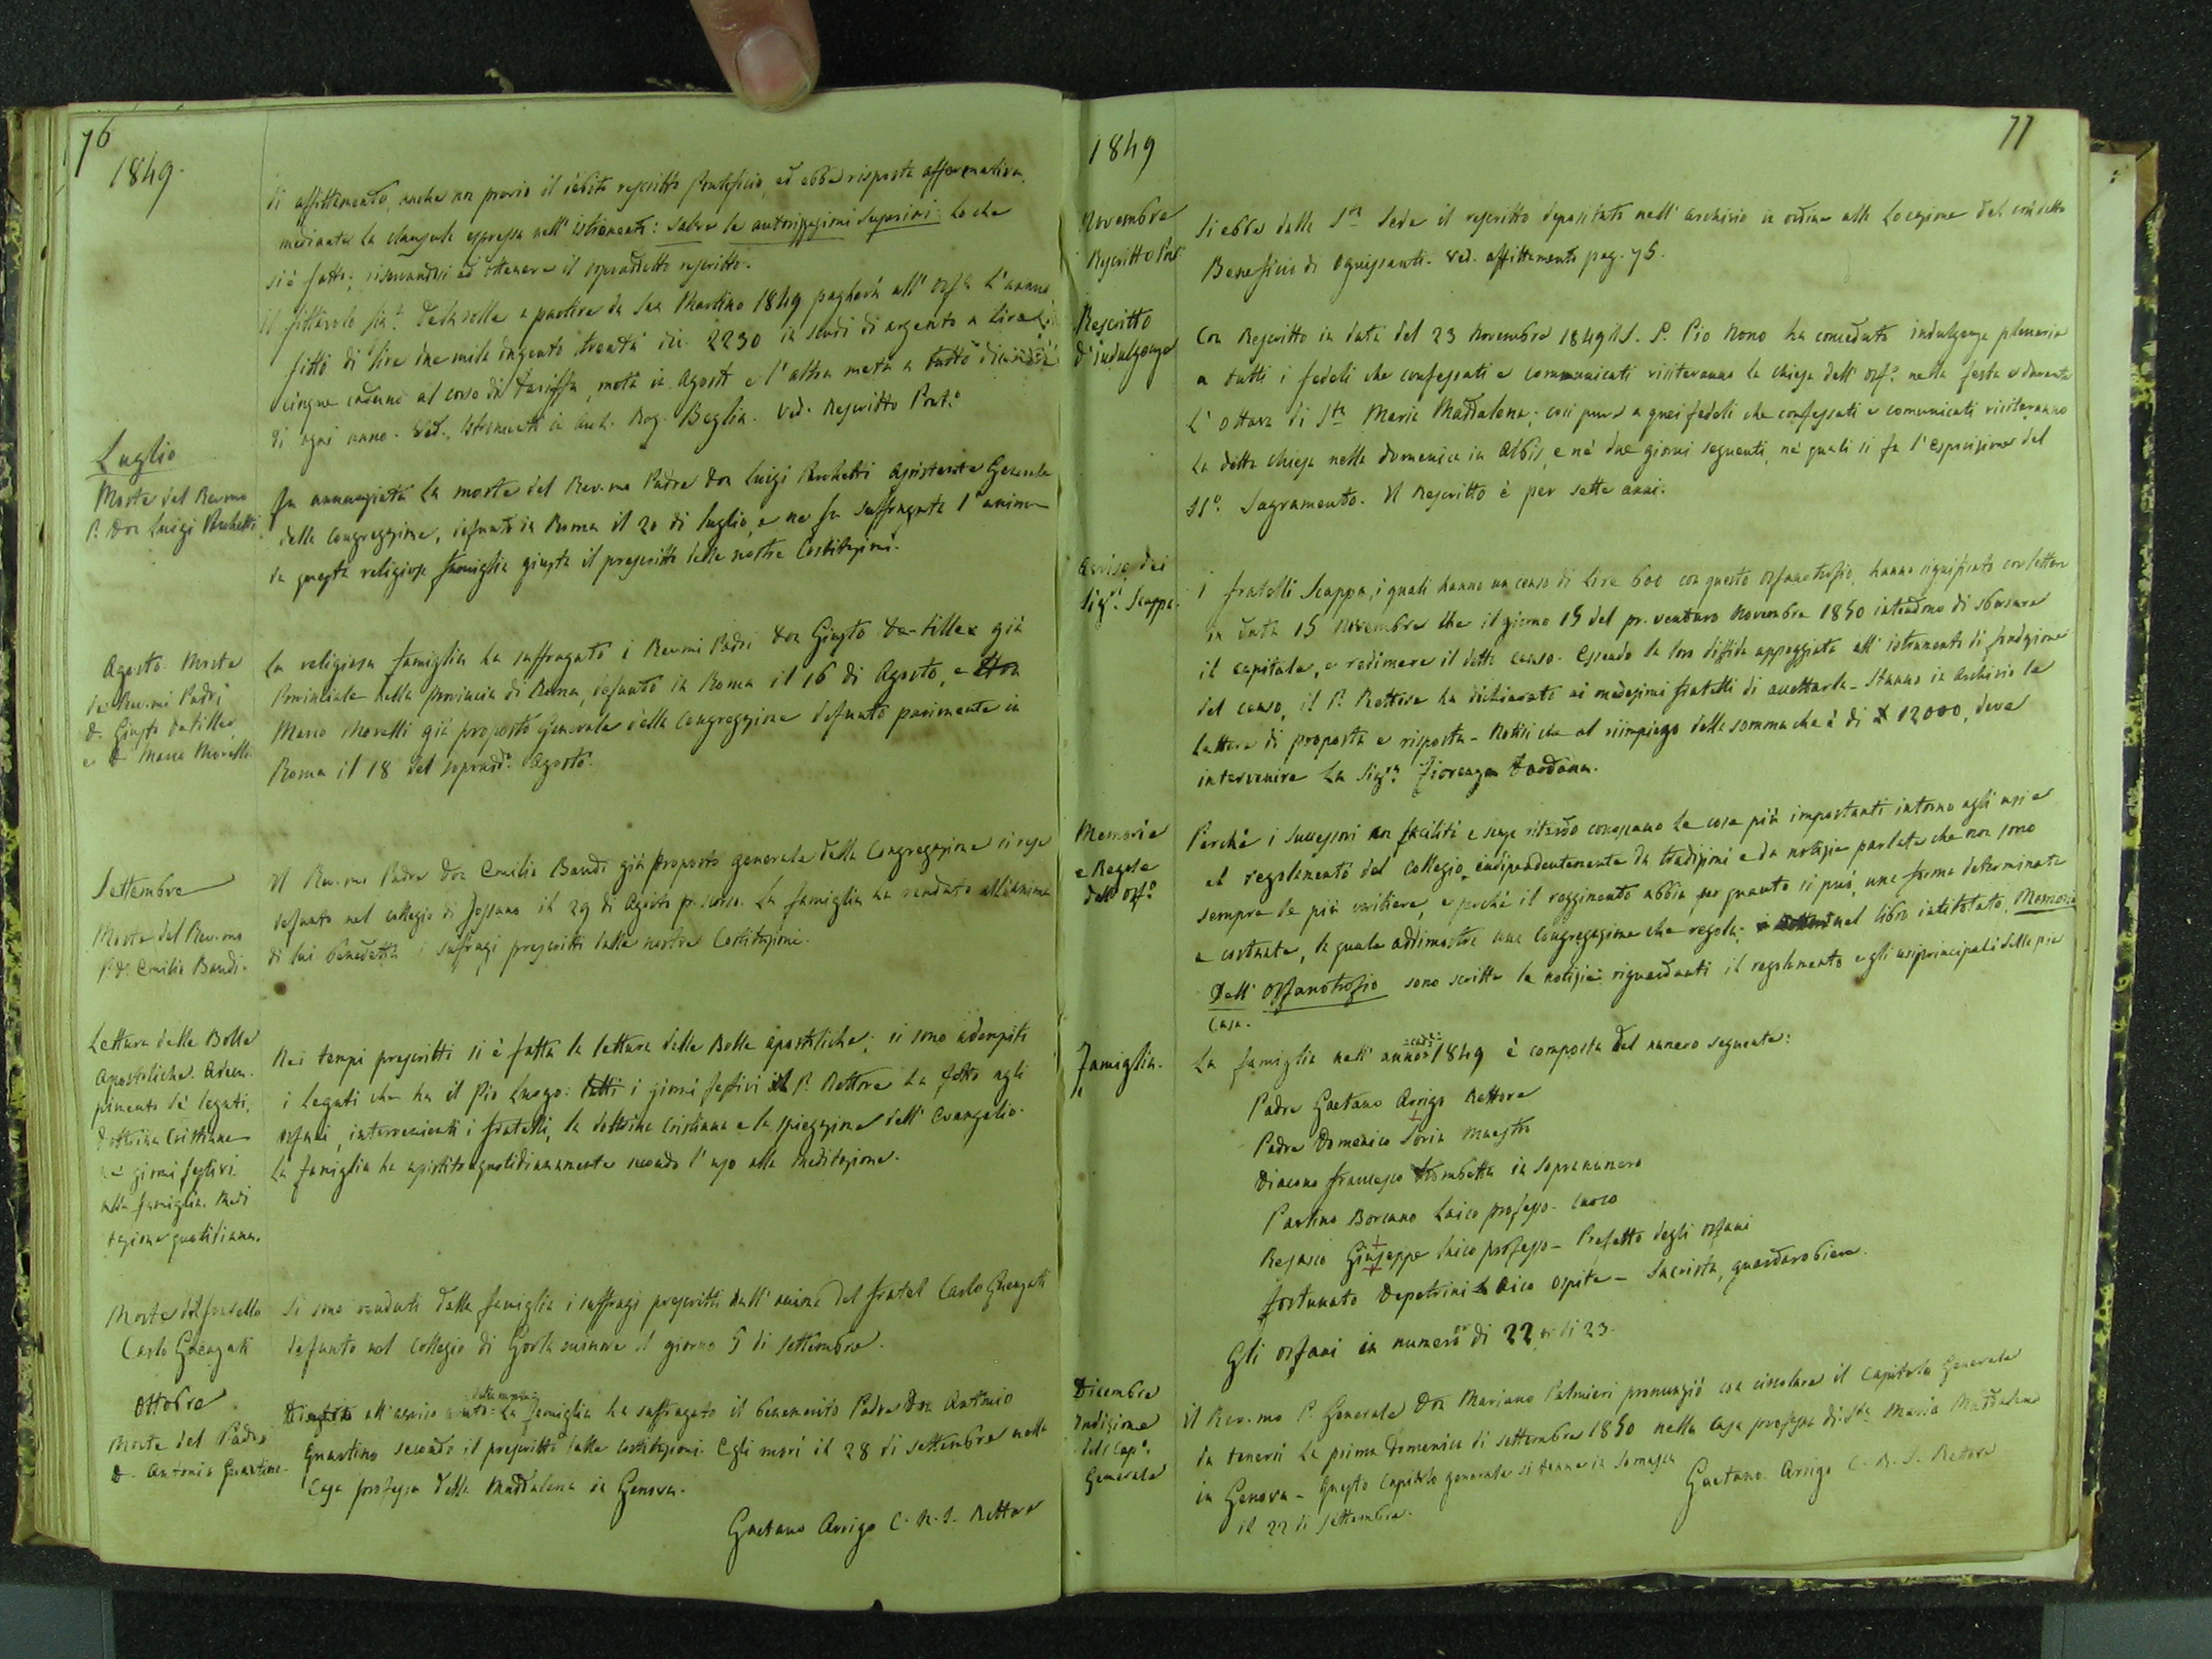 76
1849.
di affittamento, anche non previo il debito rescritto Pontificio, ed ebbe risposta affermativa,
mediante la clausula espressa nell' istromento: salve le autorizzazioni superiori: Lo che
si è fatto; riservandosi ad ottenere il sopraddetto rescritto.
il fittavolo a partire da San Martino 1849 pagherà all' Orf.o l'annuo
fitto di lire due mila ducento trenta dic. 2230 in scudi di argento a lire
cinque caduno al corso di tariffa, metà in Agosto e l'altra metà a tutto dicembre
di ogni anno. Ved. Istromento in Arch. Rog. Beglia. Ved. Rescritto Pont.o
Luglio
Morte del Rev.mo
P. Don Luigi Parchetti
Fu annunziata la morte del Rev.mo Padre Don Luigi Parchetti Assistente Generale
della Congregazione, defunto in Roma il 20 di luglio, e ne fu suffragata l'anima
da questa religiosa famiglia giusta il prescritto delle nostre Costituzioni.
Agosto. Morte
de' Rev.mi Padri
D. Giusto da-Tillex
e D. Marco Morelli
La religiosa famiglia ha suffragato i Rev.mi Padri Don Giusto da-Tillex già
Provinciale nella provincia di Roma, defunto in Roma il 16 di Agosto, e Don
Marco Morelli già proposto Generale della Congregazione defunto parimente in
Roma il 18 del sopradd.o Agosto.
Settembre
Morte del Rev.mo
P. D. Emilio Baudi.
Il Rev.mo Padre Don Emilio Baudi già proposto generale della Congregazione si rese
defunto nel collegio di Fossano il 29 di Agosto pr. scorso. La famiglia ha renduto all'anima
di lui benedetta i suffragi prescritti dalle nostre Costituzioni.
Lettura delle Bolle
Apostoliche. Adem-
pimento de' legati,
dottrina Cristiana
ne' giorni festivi
alla famiglia. Medi
tazione quotidiana.
Nei tempi prescritti si è fatta la lettura delle Bolle Apostoliche; si sono adempiti
i legati che ha il Pio Luogo: tutti i giorni festivi il P. Rettore ha fatto agli
orfani, intervenienti i fratelli, la dottrina Cristiana e la spiegazione dell' Evangelio.
La famiglia ha assistito quotidianamente secondo l'uso alla Meditazione.
Morte del fratello
Carlo Ghezzati
Si sono renduti dalla famiglia i suffragi prescritti dall' anima del fratel Carlo Ghezzati
defunto nel Collegio di Gorla minore il giorno 5 di settembre.
Ottobre
Morte del Padre
D. Antonio Guastino.
all' avviso avuto della morte la famiglia ha suffragato il benemerito Padre Don Antonio
Guastino secondo il prescritto dalle costituzioni. Egli morì il 28 di settembre nella
Casa professa della Maddalena in Genova.
Gaetano Arrigo C. R. S. Rettore
77
1849
Novembre
Rescritto Pont
Si ebbe dalla S.ta Sede il rescritto depositato nell' archivio in ordine alla locazione del suddetto
Beneficio di Ognissanti. Ved. affittamento pag. 75.
Rescritto
d' indulgenze
Con Rescritto in data del 23 Novembre 1849 il S. P. Pio Nono ha conceduto indulgenza plenaria
a tutti i fedeli che confessati e communicati visiteranno la chiesa dell' Orf.o nella festa e durante
l' ottava di S.ta Maria Maddalena; così pure a quei fedeli che confessati e comunicati visiteranno
la detta chiesa nella domenica in Albis, e ne' due giorni seguenti, ne' quali si fa l'esposizione del
SS.o Sagramento. Il Rescritto è per sette anni.
Avviso dei
Sig.ri Scappa.
I fratelli Scappa, i quali hanno un censo di lire 600 con questo Orfanotrofio, hanno significato con lettera
in data 15 Novembre che il giorno 15 del pr. venturo Novembre 1850 intendono di sborsare
il capitale, e redimere il detto censo. Essendo la loro disfida appoggiata all' istromento di fondazione
del censo, il P. Rettore ha dichiarato ai medesimi fratelli di accettarla. Stanno in Archivio le
lettere di proposta e risposta. Notisi che al riimpiego della somma che è di 12000, deve
intervenire la Sig.ra Fiorenza
Memorie
e Regole
dell' Orf.o
Perchè i successori con facilità e senza ritardo conoscano le cose più importanti intorno agli usi e
al regolamento del Collegio, indipendentemente da tradizioni e da notizie parlate che non sono
sempre le più veritiere, e perchè il reggimento abbia per quanto si può, una forma determinata
e costante, la quale addimostra una Congregazione che regola; nel libro intitolato, Memorie
Dell' Orfanotrofio sono scritte le notizie riguardanti il regolamento e gli usi principali della pia
Casa.
Famiglia.
La famiglia nell' anno 1849 è composta del numero seguente:
Padre Gaetano Arrigo Rettore
Padre Domenico Soria Maestro
Diacono Francesco Trombetta in sopranumero
Pastino Borcano Laico professo. Cuoco
Rejasco Giuseppe laico professo - Prefetto degli orfani
Fortunato Depetrini Laico Ospite - Sacrista, guardarobiere.
Gli orfani in numero or di 22 or di 23.
Dicembre
Indizione
del Cap.o
Generale
Il Rev.mo P. Generale Don Mariano Palmieri pronunziò con circolare il Capitolo Generale
da tenersi la prima Domenica di settembre 1850 nella Casa professa di S.ta Maria Maddalena
in Genova. Questo Capitolo generale si tenne in Somasca
il 22 di settembre.
Gaetano Arrigo C. R. S. Retore